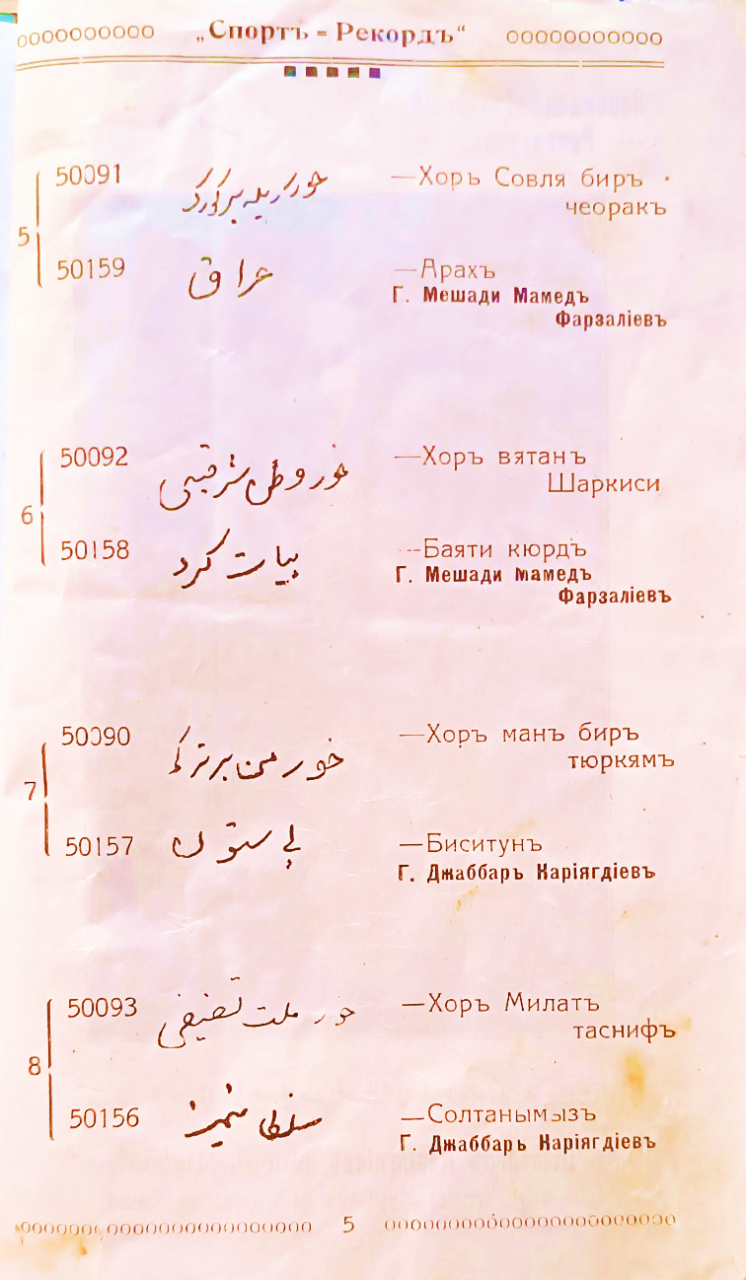 „Спортъ - Рекордъ“
5
50091 —Хоръ Совля биръ
чеоракъ
50159 عراق —Арахъ
Г. Мешади Мамедъ
Фарзаліевъ
6
50092 خور وطن شرقیسی —Хоръ вятанъ
Шаркиси
50158 بیات کرد —Баяти кюрдъ
Г. Мешади Мамедъ
Фарзаліевъ
7
50090 خور من بر ترک —Хоръ манъ биръ
тюркямъ
50157 بی ستون —Биситунъ
Г. Джаббаръ Каріягдіевъ
8
50093 خور ملت تصنیفی —Хоръ Милатъ
таснифъ
50156 —Солтанымызъ
Г. Джаббаръ Каріягдіевъ
5